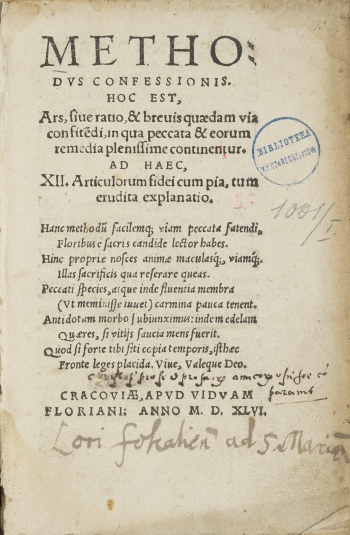 METHO:
DVS CONFESSIONIS.
HOC EST,
Ars, siue ratio, & breuis quædam via
confitẽdi, in qua peccata & eorum
remedia plenissime continentur.
AD HAEC,
XII. Articulorum fidei cum pia, tum
erudita explanatio.
BIBLIOTEKA
Hanc methodũ facilemq; viam peccata fatendi,
Floribus e sacris candide lector habes.
Hinc propriæ nosces animæ maculasq;, viamq;
Illas sacrificis qua referare queas.
Peccati species, atque inde fluentia membra
(Vt meminisse iuuet) carmina pauca tenent.
Antidotum morbo subiunximus: inde medelam
Quæres, si vitijs saucia mens fuerit.
Quod si forte tibi siti copia temporis, isthæc
Fronte leges placida. Viue, Valeque Deo.
CRACOVIÆ, APVD VIDVAM
FLORIANI: ANNO M. D. XLVI.
Lori ad S.